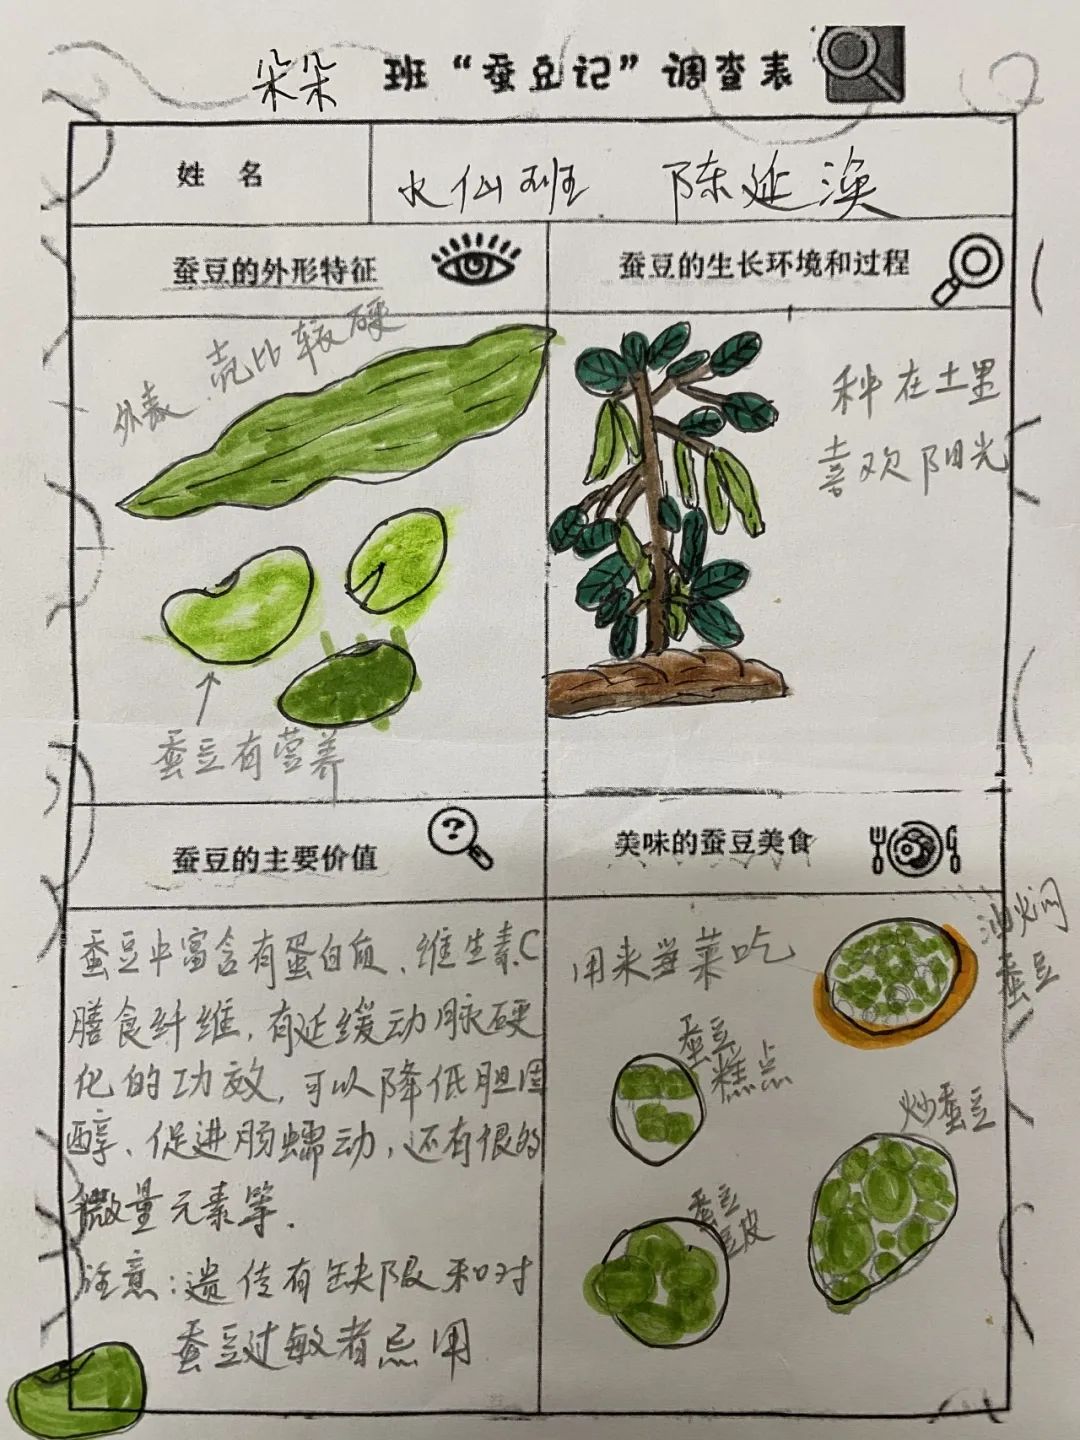 朵朵 班“蚕豆记”调查表
姓 名
水仙班 陈延涣
蚕豆的外形特征
蚕豆的生长环境和过程
外表 壳比较硬
蚕豆有营养
种在土里
喜欢阳光
蚕豆的主要价值
美味的蚕豆美食
蚕豆中富含有蛋白质、维生素C
膳食纤维，有延缓动脉硬
化的功效，可以降低胆固
醇、促进肠蠕动，还有很多
微量元素等.
注意：遗传有缺陷和对
蚕豆过敏者忌用
用来当菜吃
油焖
蚕豆
蚕豆
糕点
炒蚕豆
蚕豆
豆皮